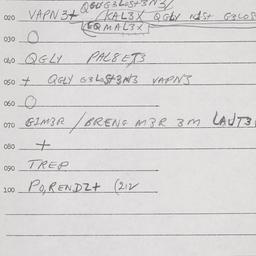 QGUG3LOST3N3/
020 VAPN3+ /KAL3X QGLY KIST G3LOS
EQMAL3X
030 O
040 QGLY PAL8ET3
050 + QGLY G3LOST3N3 VAPN3
060 O
070 GIM3R /BRENG M3R 3M LAUT3
080 +
090 TREP
100 PO,RENDZ+ (212